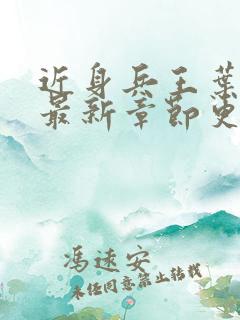 近身兵王葉
最新章節史
冯速安
未经同意禁止转载